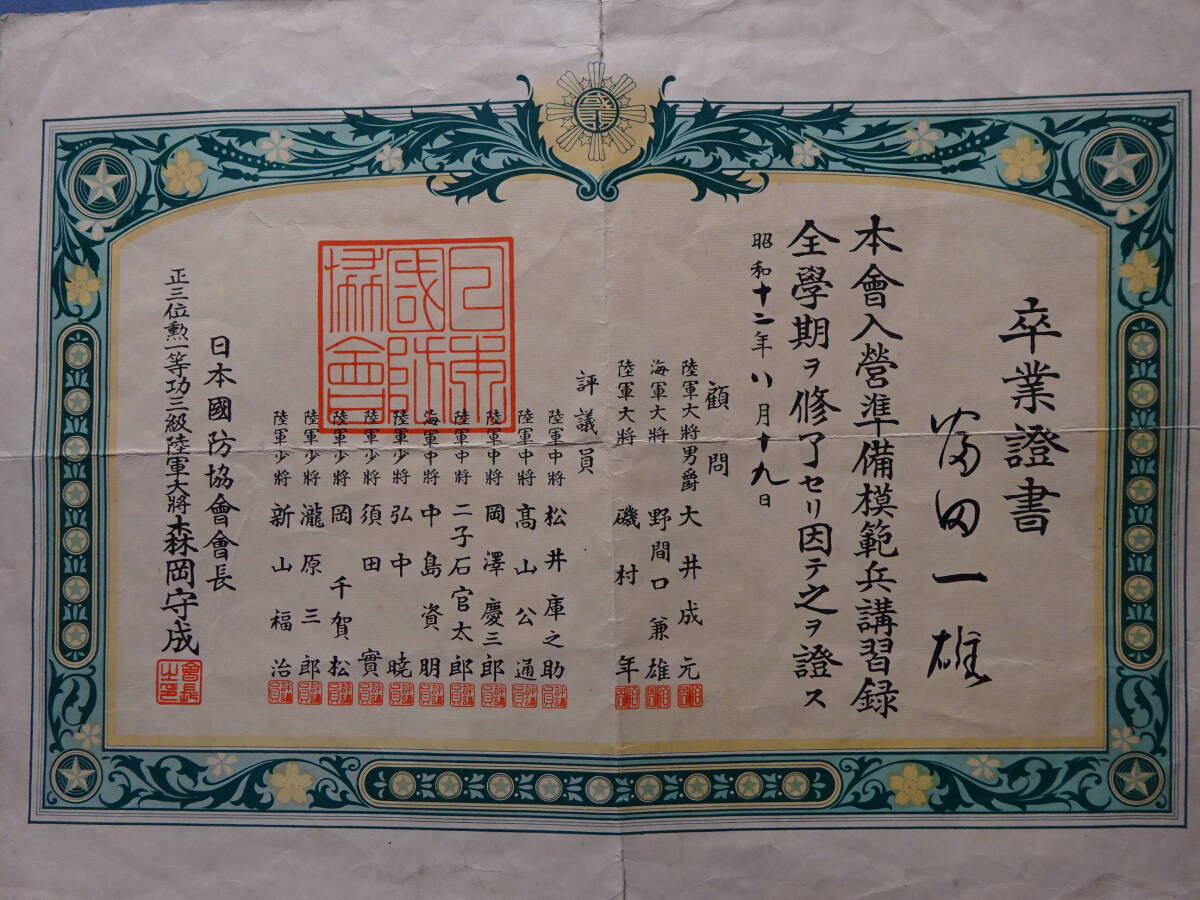 卒業證書
富田一雄
本會入營準備模範兵講習録
全學期ヲ修了セリ因テ之ヲ證ス
昭和十二年八月十九日
顧問
陸軍大將男爵 大井成元
海軍大將 野間口兼雄
陸軍大將 磯村年
評議員
陸軍中將 松井庫之助
陸軍中將 高山公通
陸軍中將 岡澤慶三郎
陸軍中將 二子石官太郎
海軍中將 中島資朋
陸軍少將 弘中暁
陸軍少將 須田實
陸軍少將 岡千賀松
陸軍少將 瀧原三郎
陸軍少將 新山福治
日本國防協會
日本國防協會會長
正三位勲一等功三級陸軍大將 森岡守成
會長之印